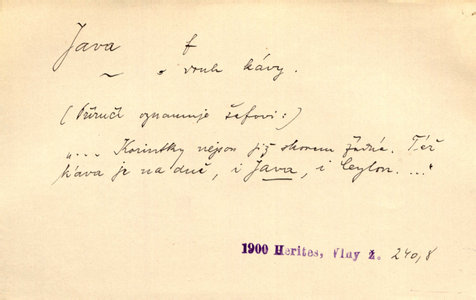 Java f
~ druh kávy.
(Příručí oznamuje šéfovi:)
"... Korintky nejsou již skorem žádné. Též
káva je na dně, i Java, i Ceylon. ..."
1900 Herites, Vlny ž. 240,8